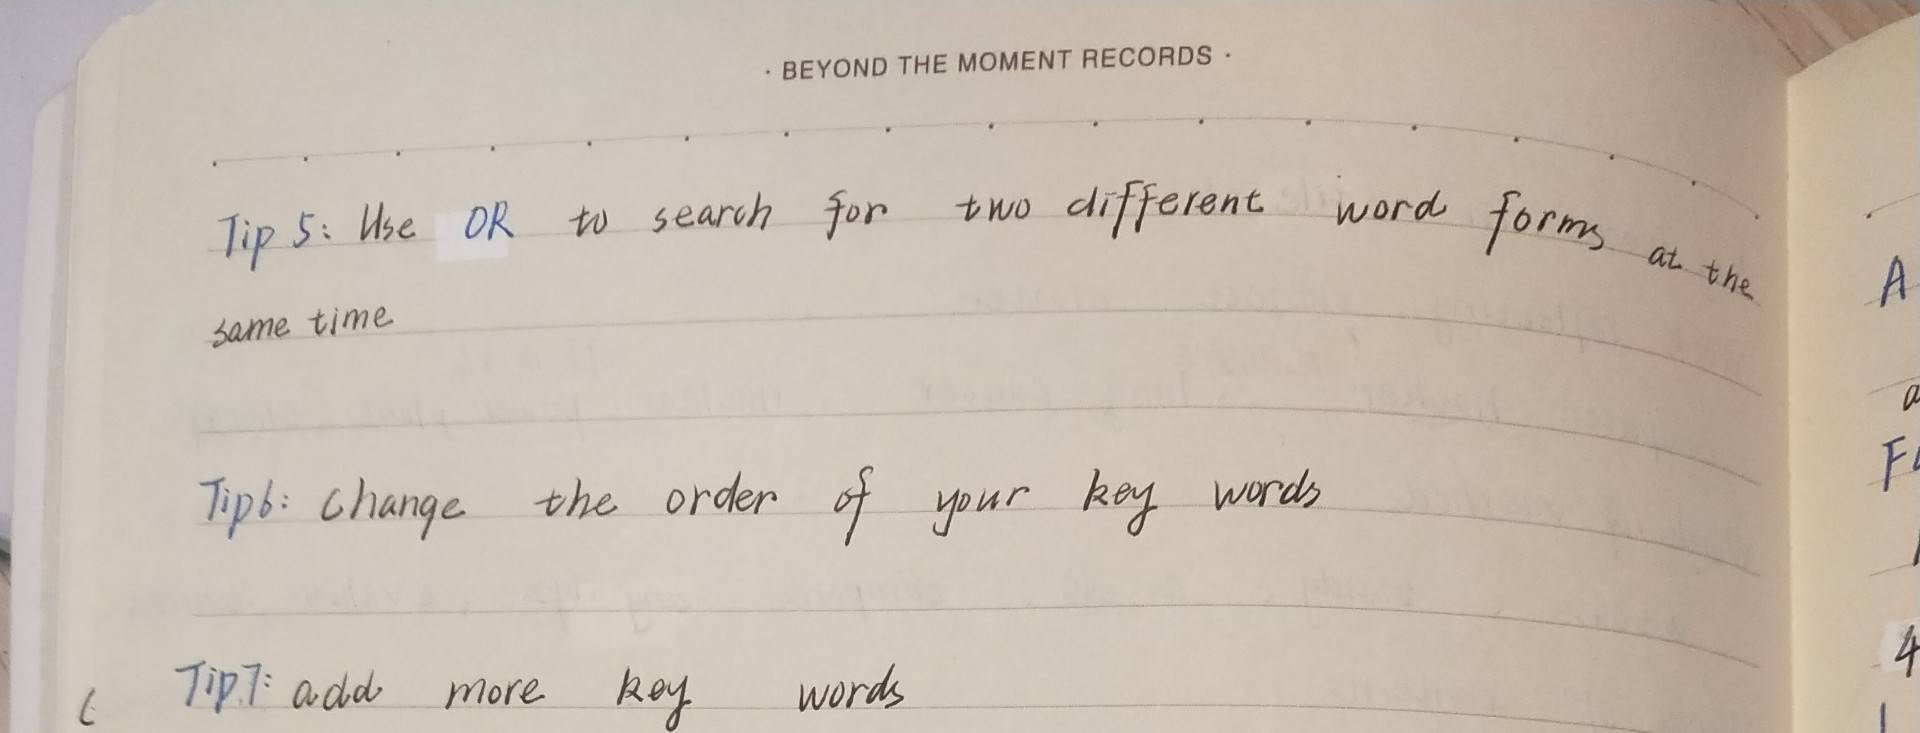 · BEYOND THE MOMENT RECORDS ·
Tip 5: Use OR to search for two different word forms at the
same time
Tip6: change the order of your key words
Tip7: add more key words
A
a
F
4